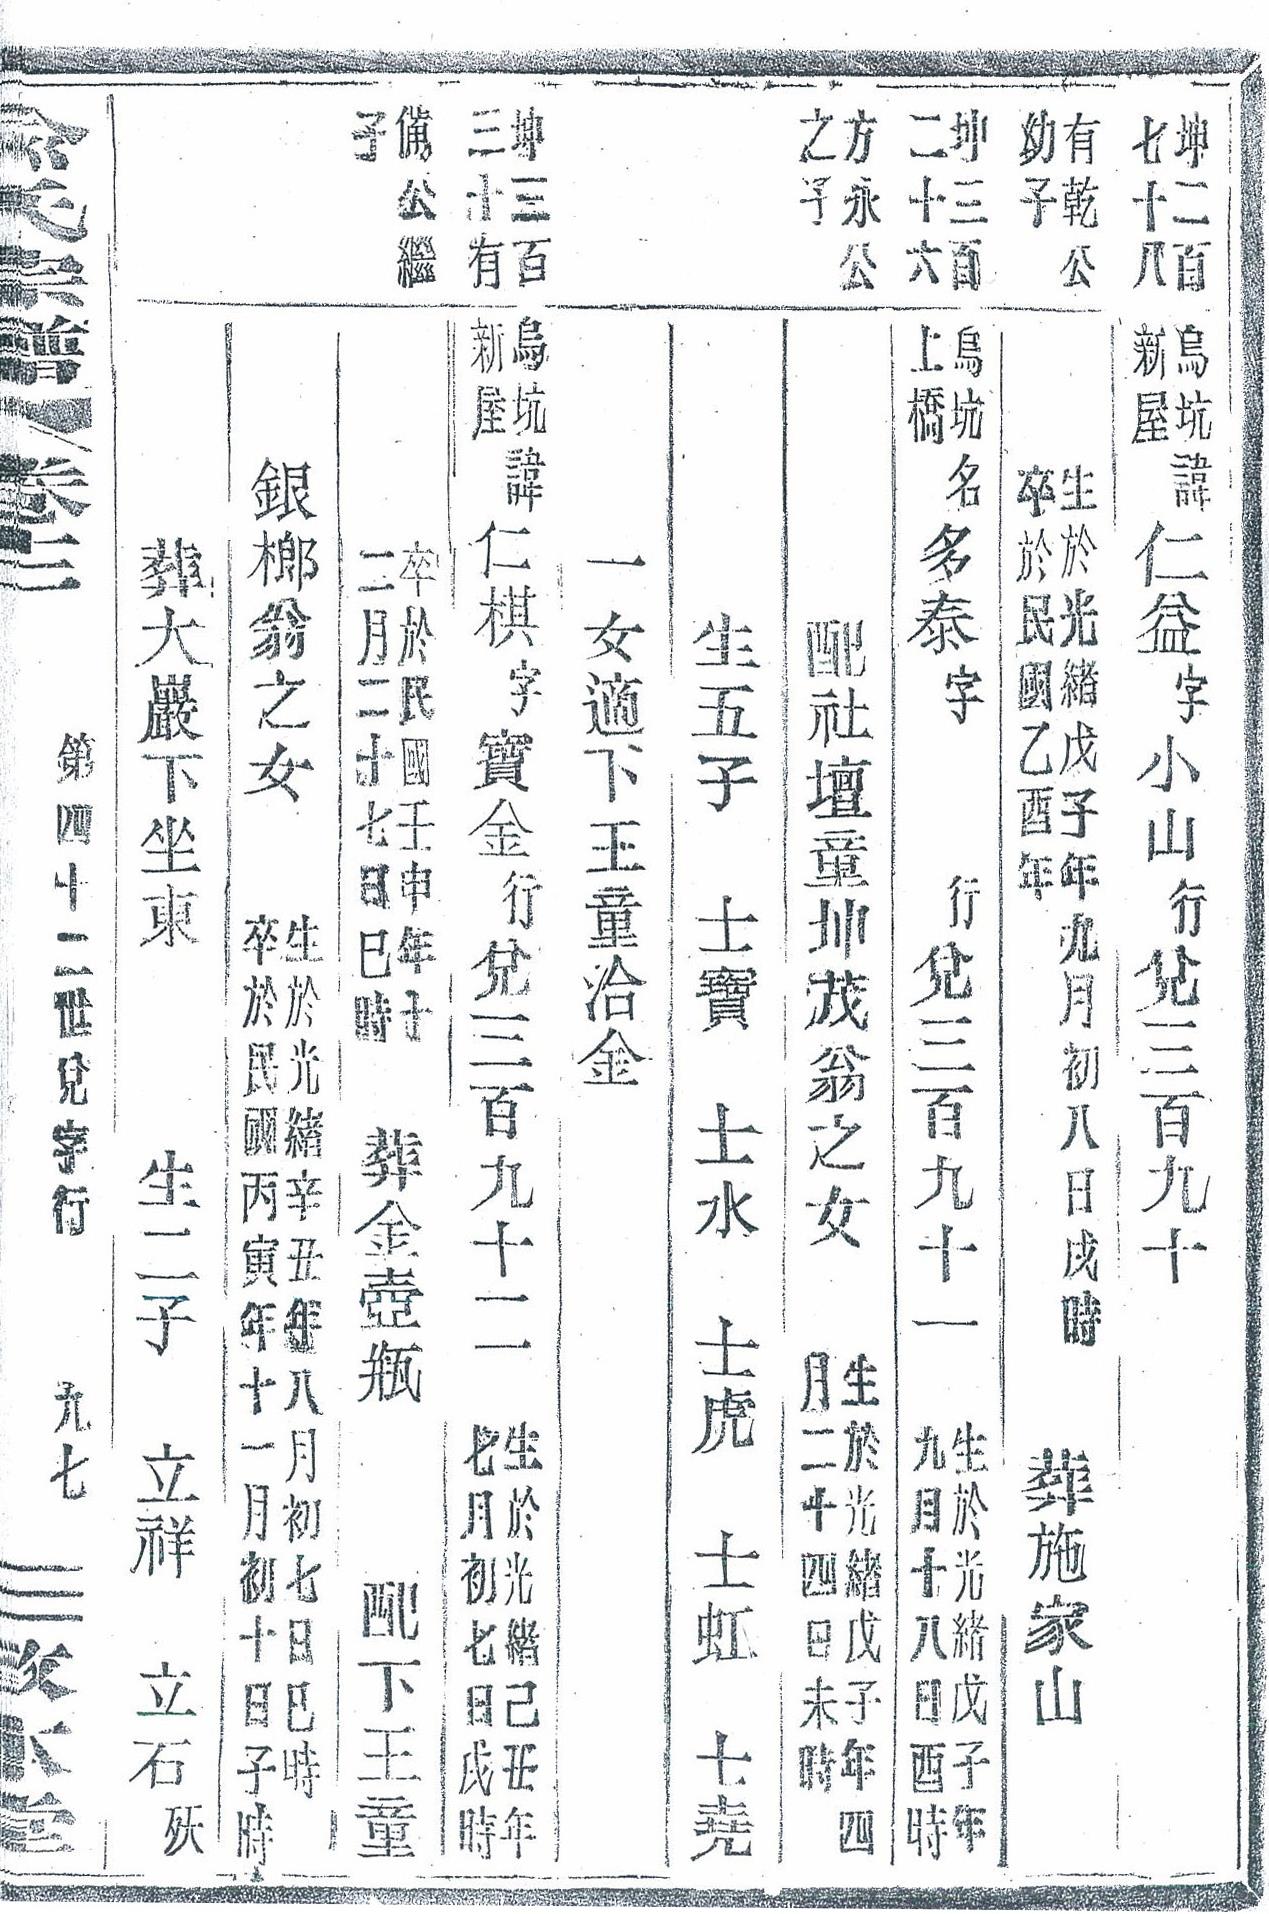 坤二百
七十八
烏坑
新屋
諱仁益字小山行兌三百九十
有乾公
幼子
生於光緒戊子年九月初八日戌時
卒於民國乙酉年
葬施家山
坤三百
二十六
烏坑
上橋
名多泰字 行兌三百九十一
生於光緒戊子年
九月十八日酉時
方永公
之子
配社壇童坤茂翁之女
生於光緒戊子年四
月二十四日未時
生五子 士寶 士水 士虎 士虹 士堯
一女適下王童治金
坤三百
三十有
烏坑
新屋
諱仁棋字寶金行兌三百九十二
生於光緒己丑年
七月初七日戌時
備公繼
子
卒於民國壬申年十
二月二十七日巳時
葬金壺瓶 配下王童
銀榔翁之女
生於光緒辛丑年八月初七日巳時
卒於民國丙寅年十一月初十日子時
葬大巖下坐東 生二子 立祥 立石
余氏宗譜 卷三
第四十二世兌字行
九七
三政堂